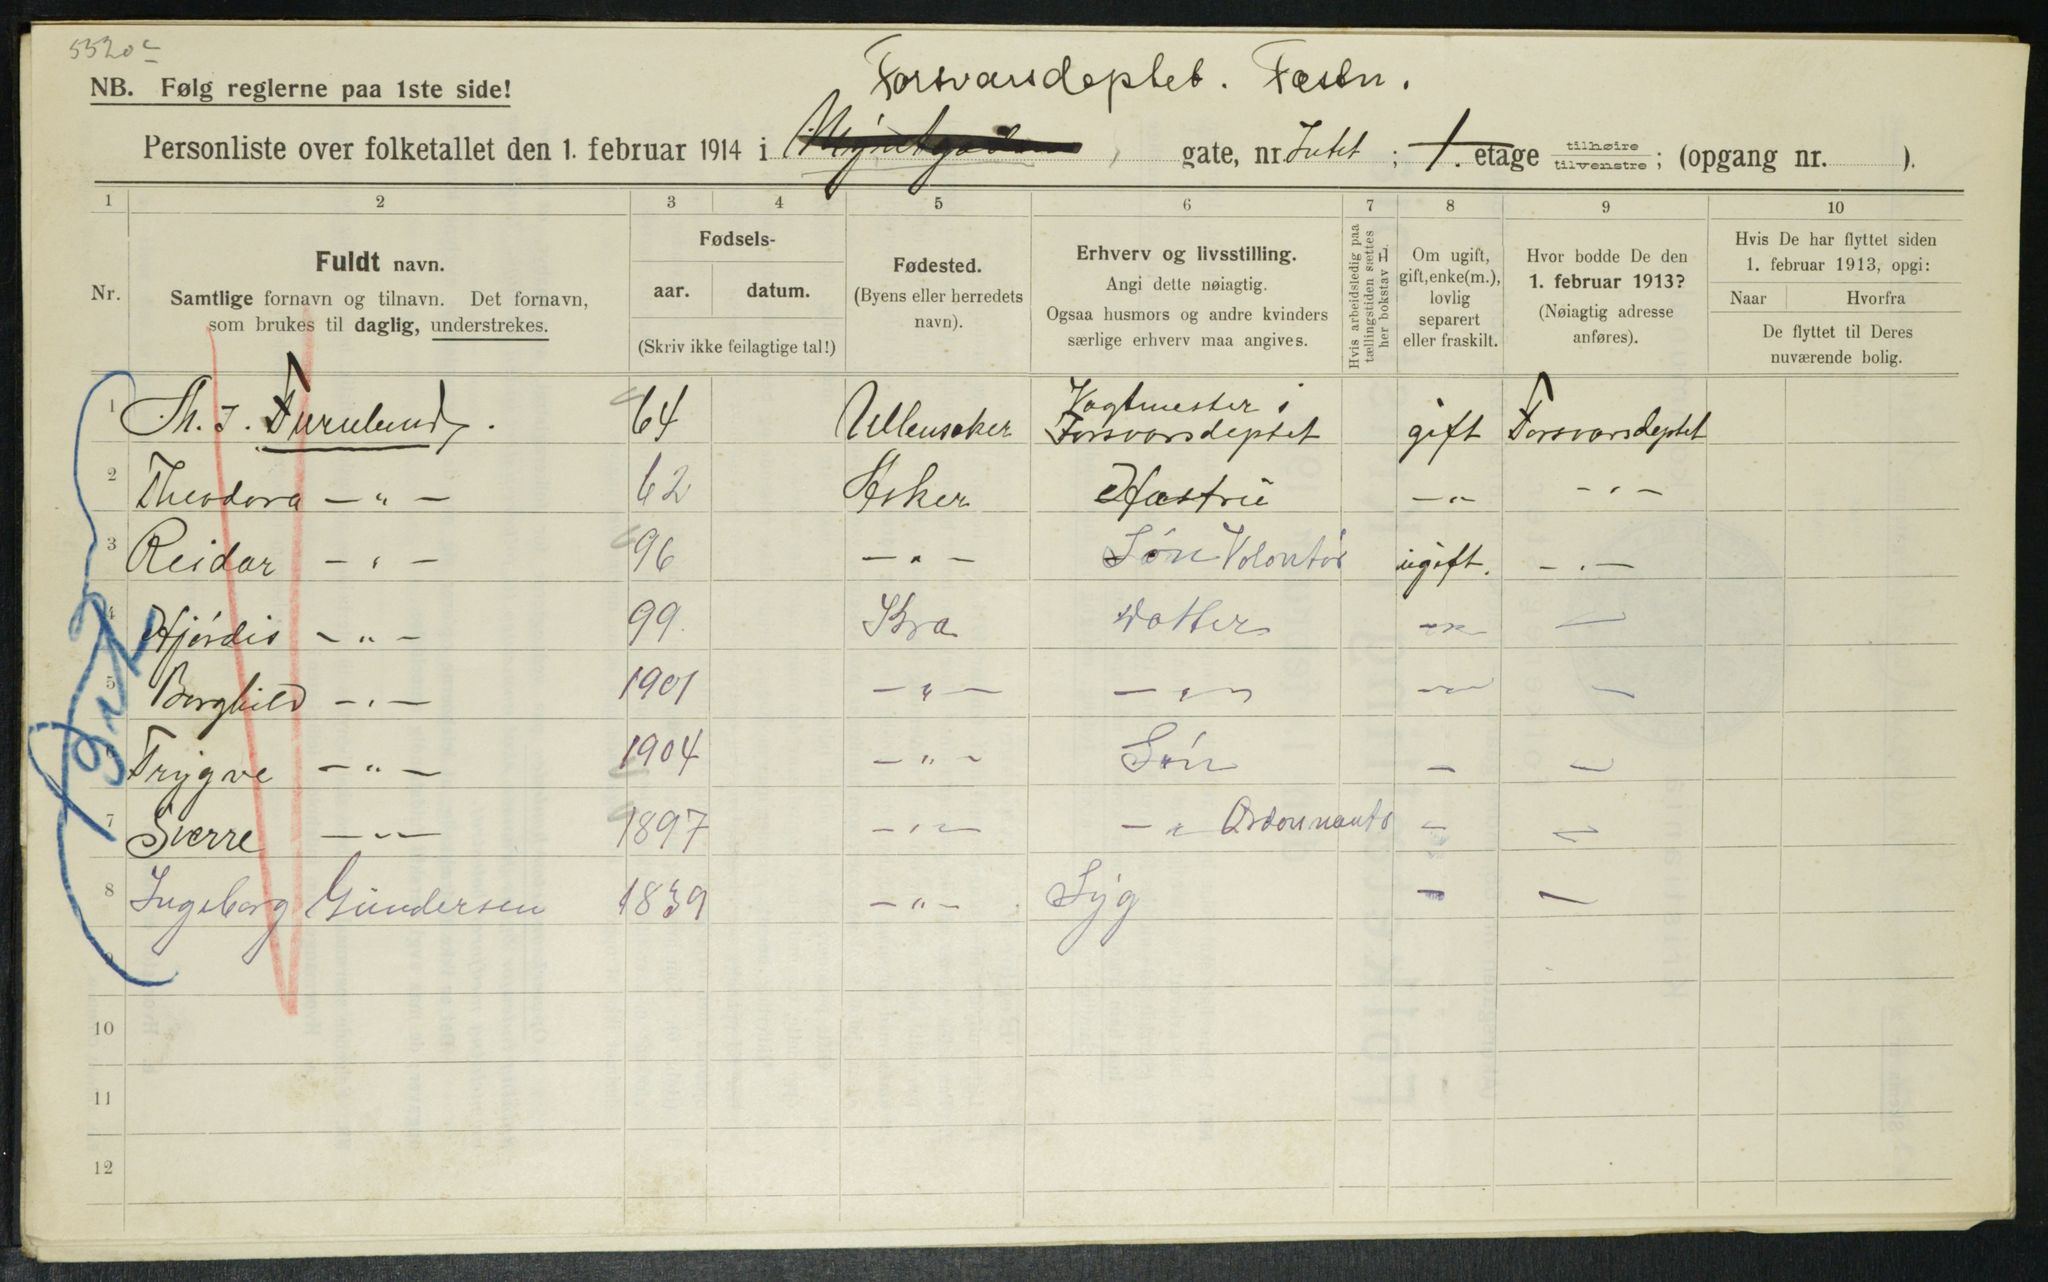 5520c
Forsvarsdeptet. Fæstn.
NB. Følg reglerne paa 1ste side!
Personliste over folketallet den 1. februar 1914 i Myntgaden gate, nr. Intet; 1. etage tilhøire tilvenstre; (opgang nr. ).
1 2 3 4 5 6 7 8 9 10
Nr.
Fuldt navn.
Samtlige fornavn og tilnavn. Det fornavn,
som brukes til daglig, understrekes.
Fødsels-
aar. datum.
(Skriv ikke feilagtige tal!)
Fødested.
(Byens eller herredets
navn).
Erhverv og livsstilling.
Angi dette nøiagtig.
Ogsaa husmors og andre kvinders
særlige erhverv maa angives.
Hvis arbeidsledig paa
tællingstiden sættes
her bokstav H.
Om ugift,
gift, enke(m.),
lovlig
separert
eller fraskilt.
Hvor bodde De den
1. februar 1913?
(Nøiagtig adresse
anføres).
Hvis De har flyttet siden
1. februar 1913, opgi:
Naar Hvorfra
De flyttet til Deres
nuværende bolig.
1 Th. J. Furulund. 64 Ullensaker Vagtmester i Forsvarsdeptet gift Forsvarsdeptet
2 Theodora — " — 62 Asker Hustru — " — " —
3 Reidar — " — 96 — " — Søn Volontør ugift. — " —
4 Hjørdis — " — 99. Kra Datter — " —
5 Borghild — " — 1901 — " — — " — — " —
6 Trygve — " — 1904 — " — Søn — —
7 Sverre — " — 1897 — " — — " Ordonnants — —
8 Ingeborg Gundersen 1839 — " — Syg — —
9
10
11
12